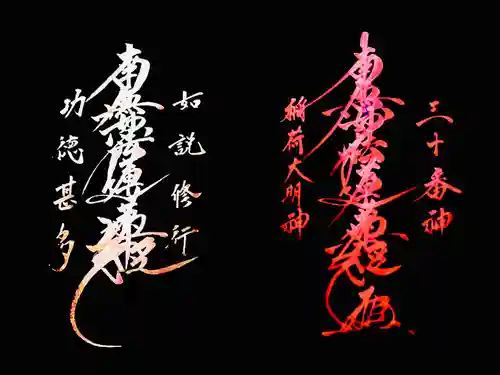 三十番神
南無妙法蓮華経
稲荷大明神
如説修行
南無妙法蓮華経
功徳甚多